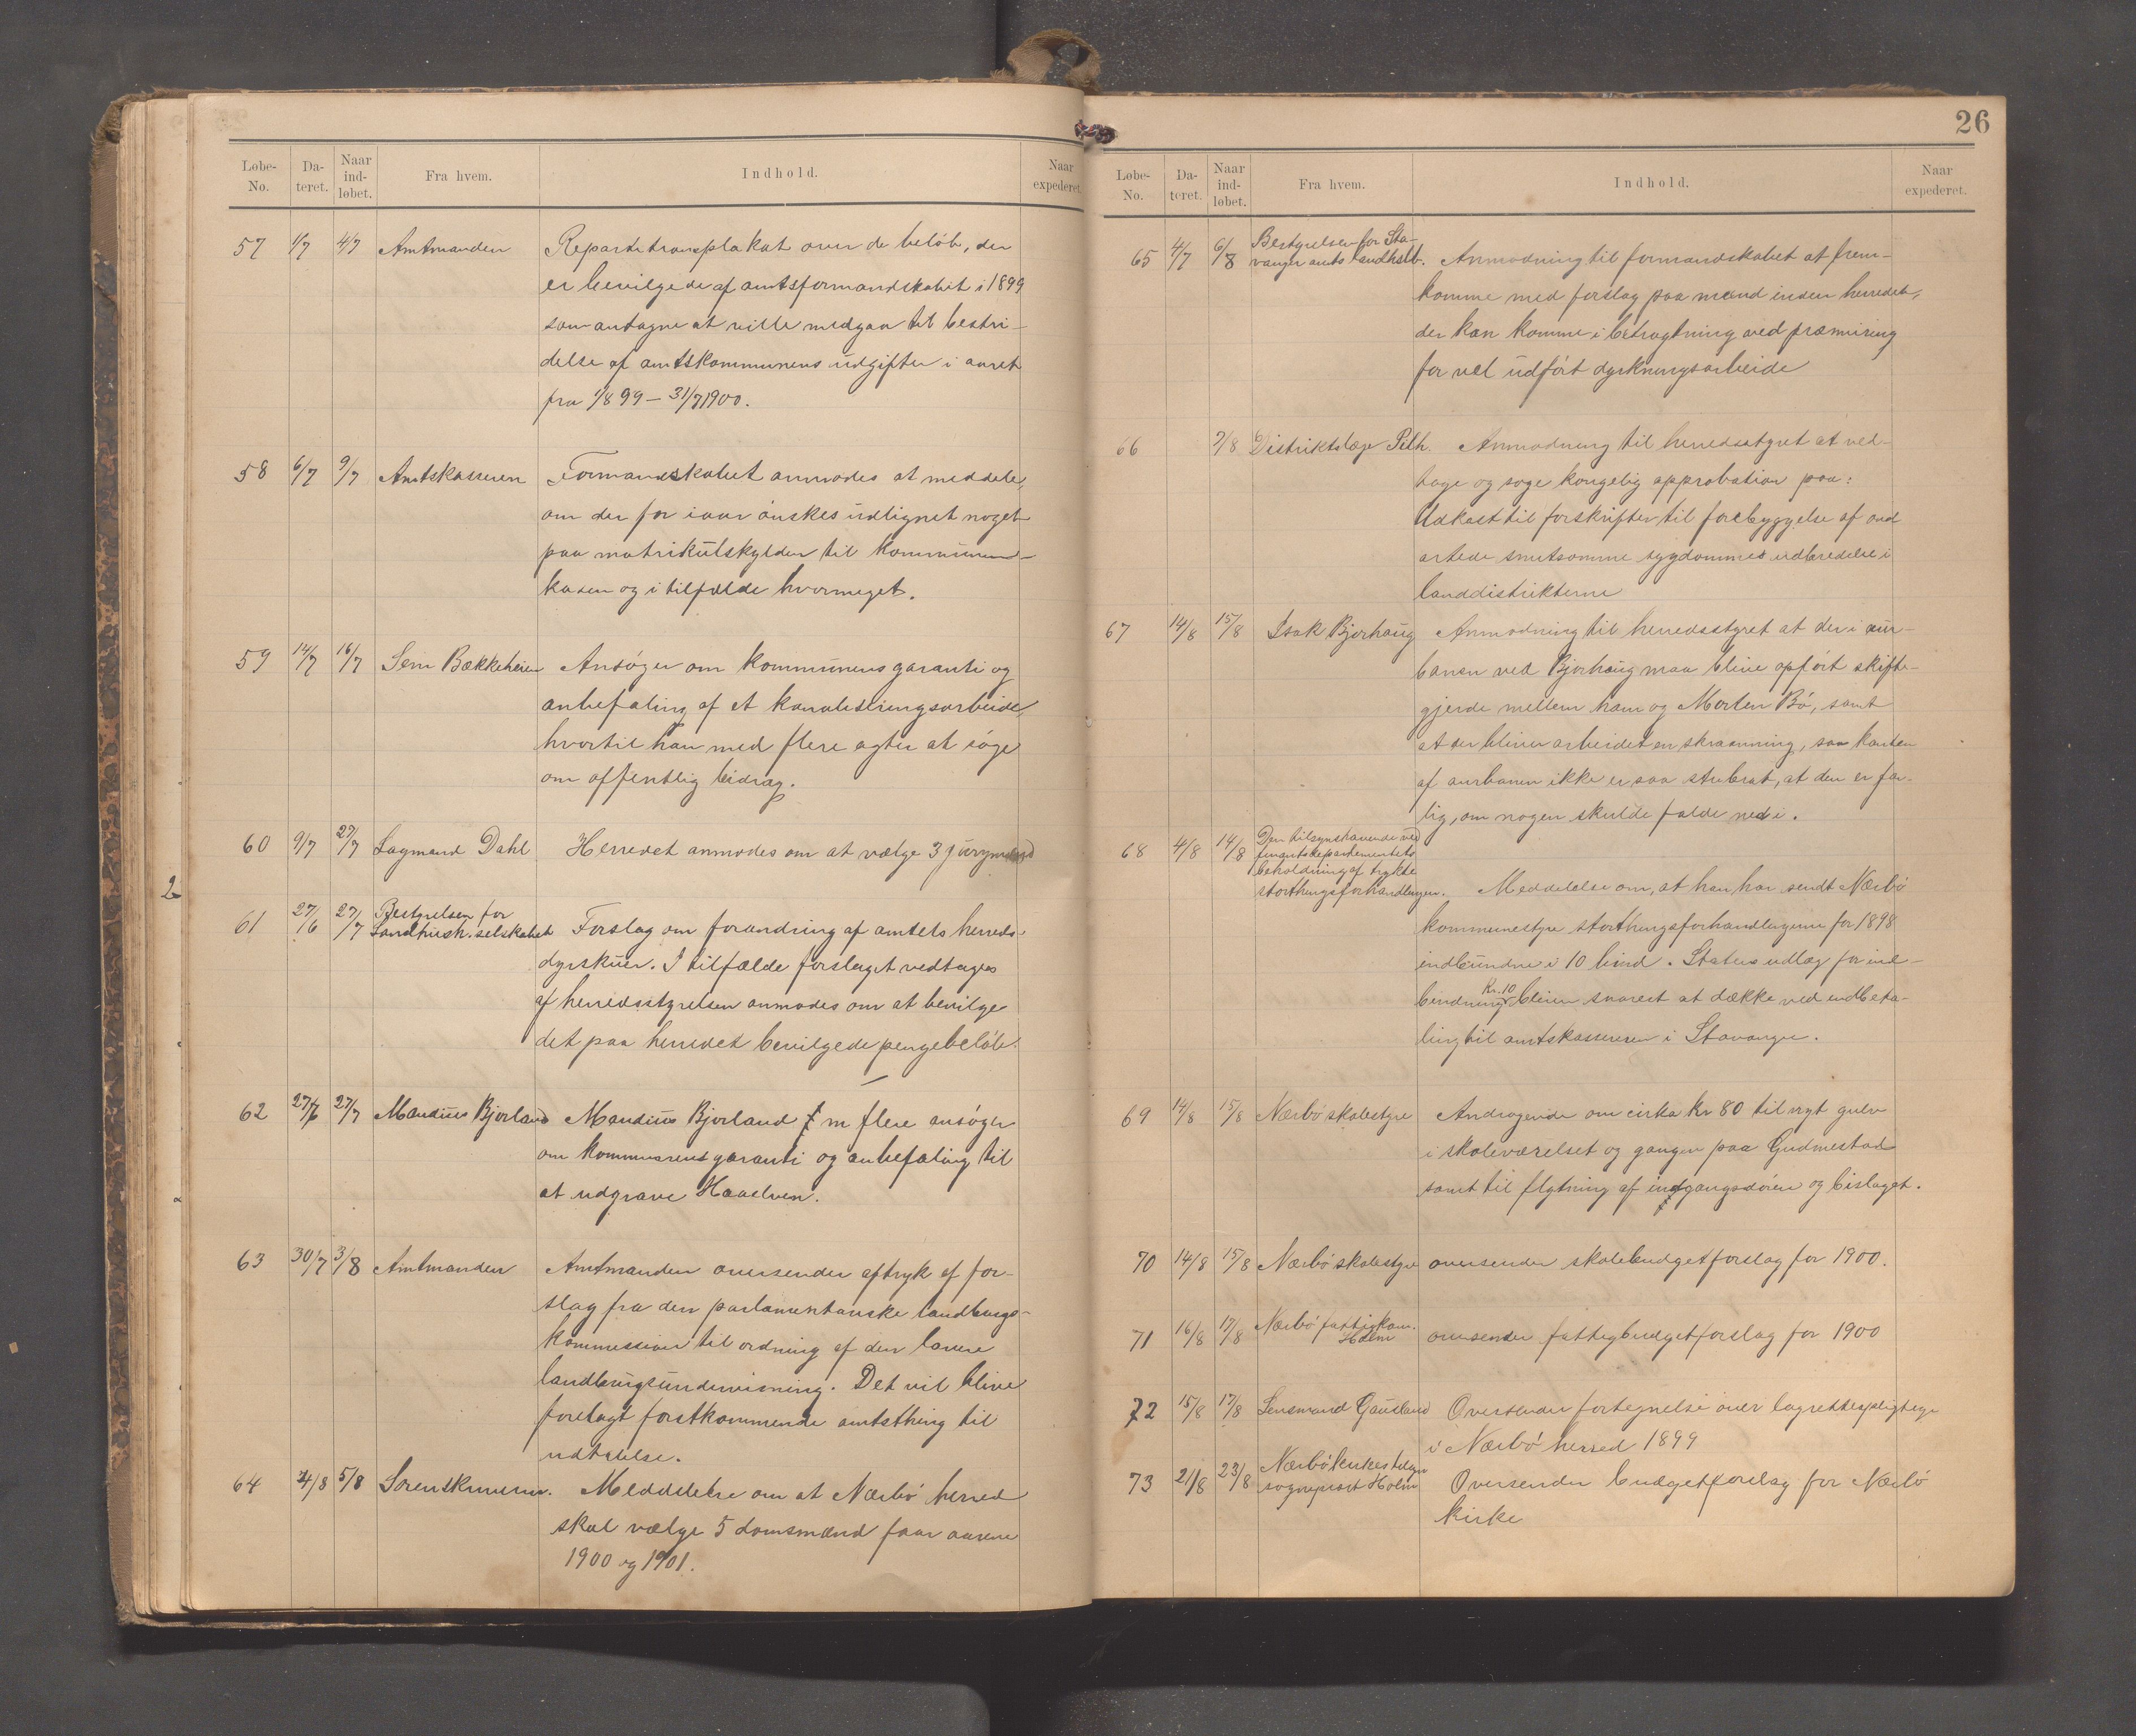 Løbe-No. Da-teret. Naar ind-løbet. Fra hvem. Indhold. Naar expederet.
57 1/7 4/7 Amtmanden Repartitionsplakat over de beløb, der
er bevilgede af amtsformandskabet i 1899
som antagne at ville medgaa til bestri-
delse af amtskommunens udgifter i aaret
fra 1/8 99 – 31/7 1900.
58 6/7 9/7 Amtskasseren Formandskabet anmodes at meddele,
om der for iaar ønskes udlignet noget
paa matrikulskylden til kommunens-
kasen og i tilfælde hvormeget.
59 14/7 16/7 Sem Bækkeheien Ansøger om kommunens garanti og
anbefaling af et kanaliseringsarbeide,
hvortil han med flere agter at søge
om offentlig bidrag.
60 9/7 27/7 Lagmand Dahl Herredet anmodes om at vælge 3 jurymænd
61 27/6 27/7 Bestyrelsen for
Landhush. selskabet Forslag om forandring af amtets herreds-
dyrskuer. I tilfælde forslaget vedtages
af herredsstyrelsen anmodes om at bevilge
det paa herredet bevilgede pengebeløb.
62 27/6 27/7 Mandius Bjorland Mandius Bjorland m flere ansøger
om kommunens garanti og anbefaling til
at udgrave Haaelven.
63 30/7 3/8 Amtmanden Amtmanden oversender aftryk af for-
slag fra den parlamentariske landbrugs-
kommission til ordning af den lavere
landbrugsundervisning. Det vil blive
forelagt førstkommende amtsthing til
udtalelse.
64 4/8 5/8 Sorenskriveren. Meddelelse om at Nærbø herred
skal vælge 5 domsmænd faar aarene
1900 og 1901.
2
26
Løbe-No. Da-teret. Naar ind-løbet. Fra hvem. Indhold. Naar expederet.
65 4/7 6/8 Bestyrelsen for Sta-
vanger amts landhslb. Anmodning til formandskabet at frem-
komme med forslag paa mænd inden herredet,
der kan komme i betragtning ved præmiering
for vel udført dyrkningsarbeide
66 7/8 Distriktslæge Anmodning til herredsstyret at ved-
tage og søge kongelig approbation paa:
Udkast til forskrifter til forebyggelse af ond
artede smitsomme sygdommes udbredelse i
landdistrikterne
67 14/8 15/8 Isak Bjorhaug Anmodning til herredsstyret at der i aur-
banen ved Bjorhaug maa blive opført skifte-
gjerde mellem ham og Morten Bø, samt
at der bliver arbeidet en skraaning, saa kanten
af aurbanen ikke er saa stubrat, at den er far-
lig, om nogen skulde falde ned i.
68 4/8 14/8 Den tilsynshavende ved
finantsdepartementets
beholdning af trykte
storthingsforhandlinger. Meddelelse om, at han har sendt Nærbø
kommunestyre storthingsforhandlingerne for 1898
indbundne i 10 bind. Statens udlæg for ind-
bindning Kr. 10 bliver snarest at dække ved indbeta-
ling til amtskassereren i Stavanger.
69 14/8 15/8 Nærbø skolestyre Andragende om cirka kr 80 til nyt gulv
i skoleværelset og gangen paa Gudmestad
samt til flytning af indgangsdøren og bislaget.
70 14/8 15/8 Nærbø skolestyre oversender skolebudgetforslag for 1900.
71 16/8 17/8 Nærbø fattigkom.
Holm oversender fattigbudgetforslag for 1900
72 15/8 17/8 Lensmand Gausland Oversender fortegnelse over lagrettespligtige
i Nærbø herred 1899
73 21/8 23/8 Nærbø kirkestilsyn
sogneprest Holm Oversender budgetforslag for Nærbø
kirke